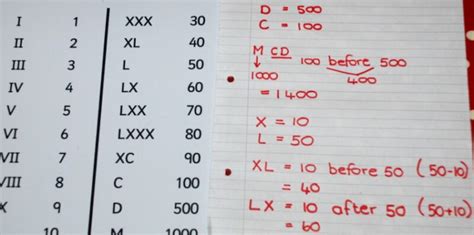 I 1 XXX 30
II 2 XL 40
III 3 L 50
IV 4 LX 60
V 5 LXX 70
VI 6 LXXX 80
VII 7 XC 90
VIII 8 C 100
X 9 D 500
10 M 1000
D = 500
C = 100
M CD 100 before 500
↓ 400
1000
= 1400
X = 10
L = 50
XL = 10 before 50 (50-10)
= 40
LX = 10 after 50 (50+10)
= 60